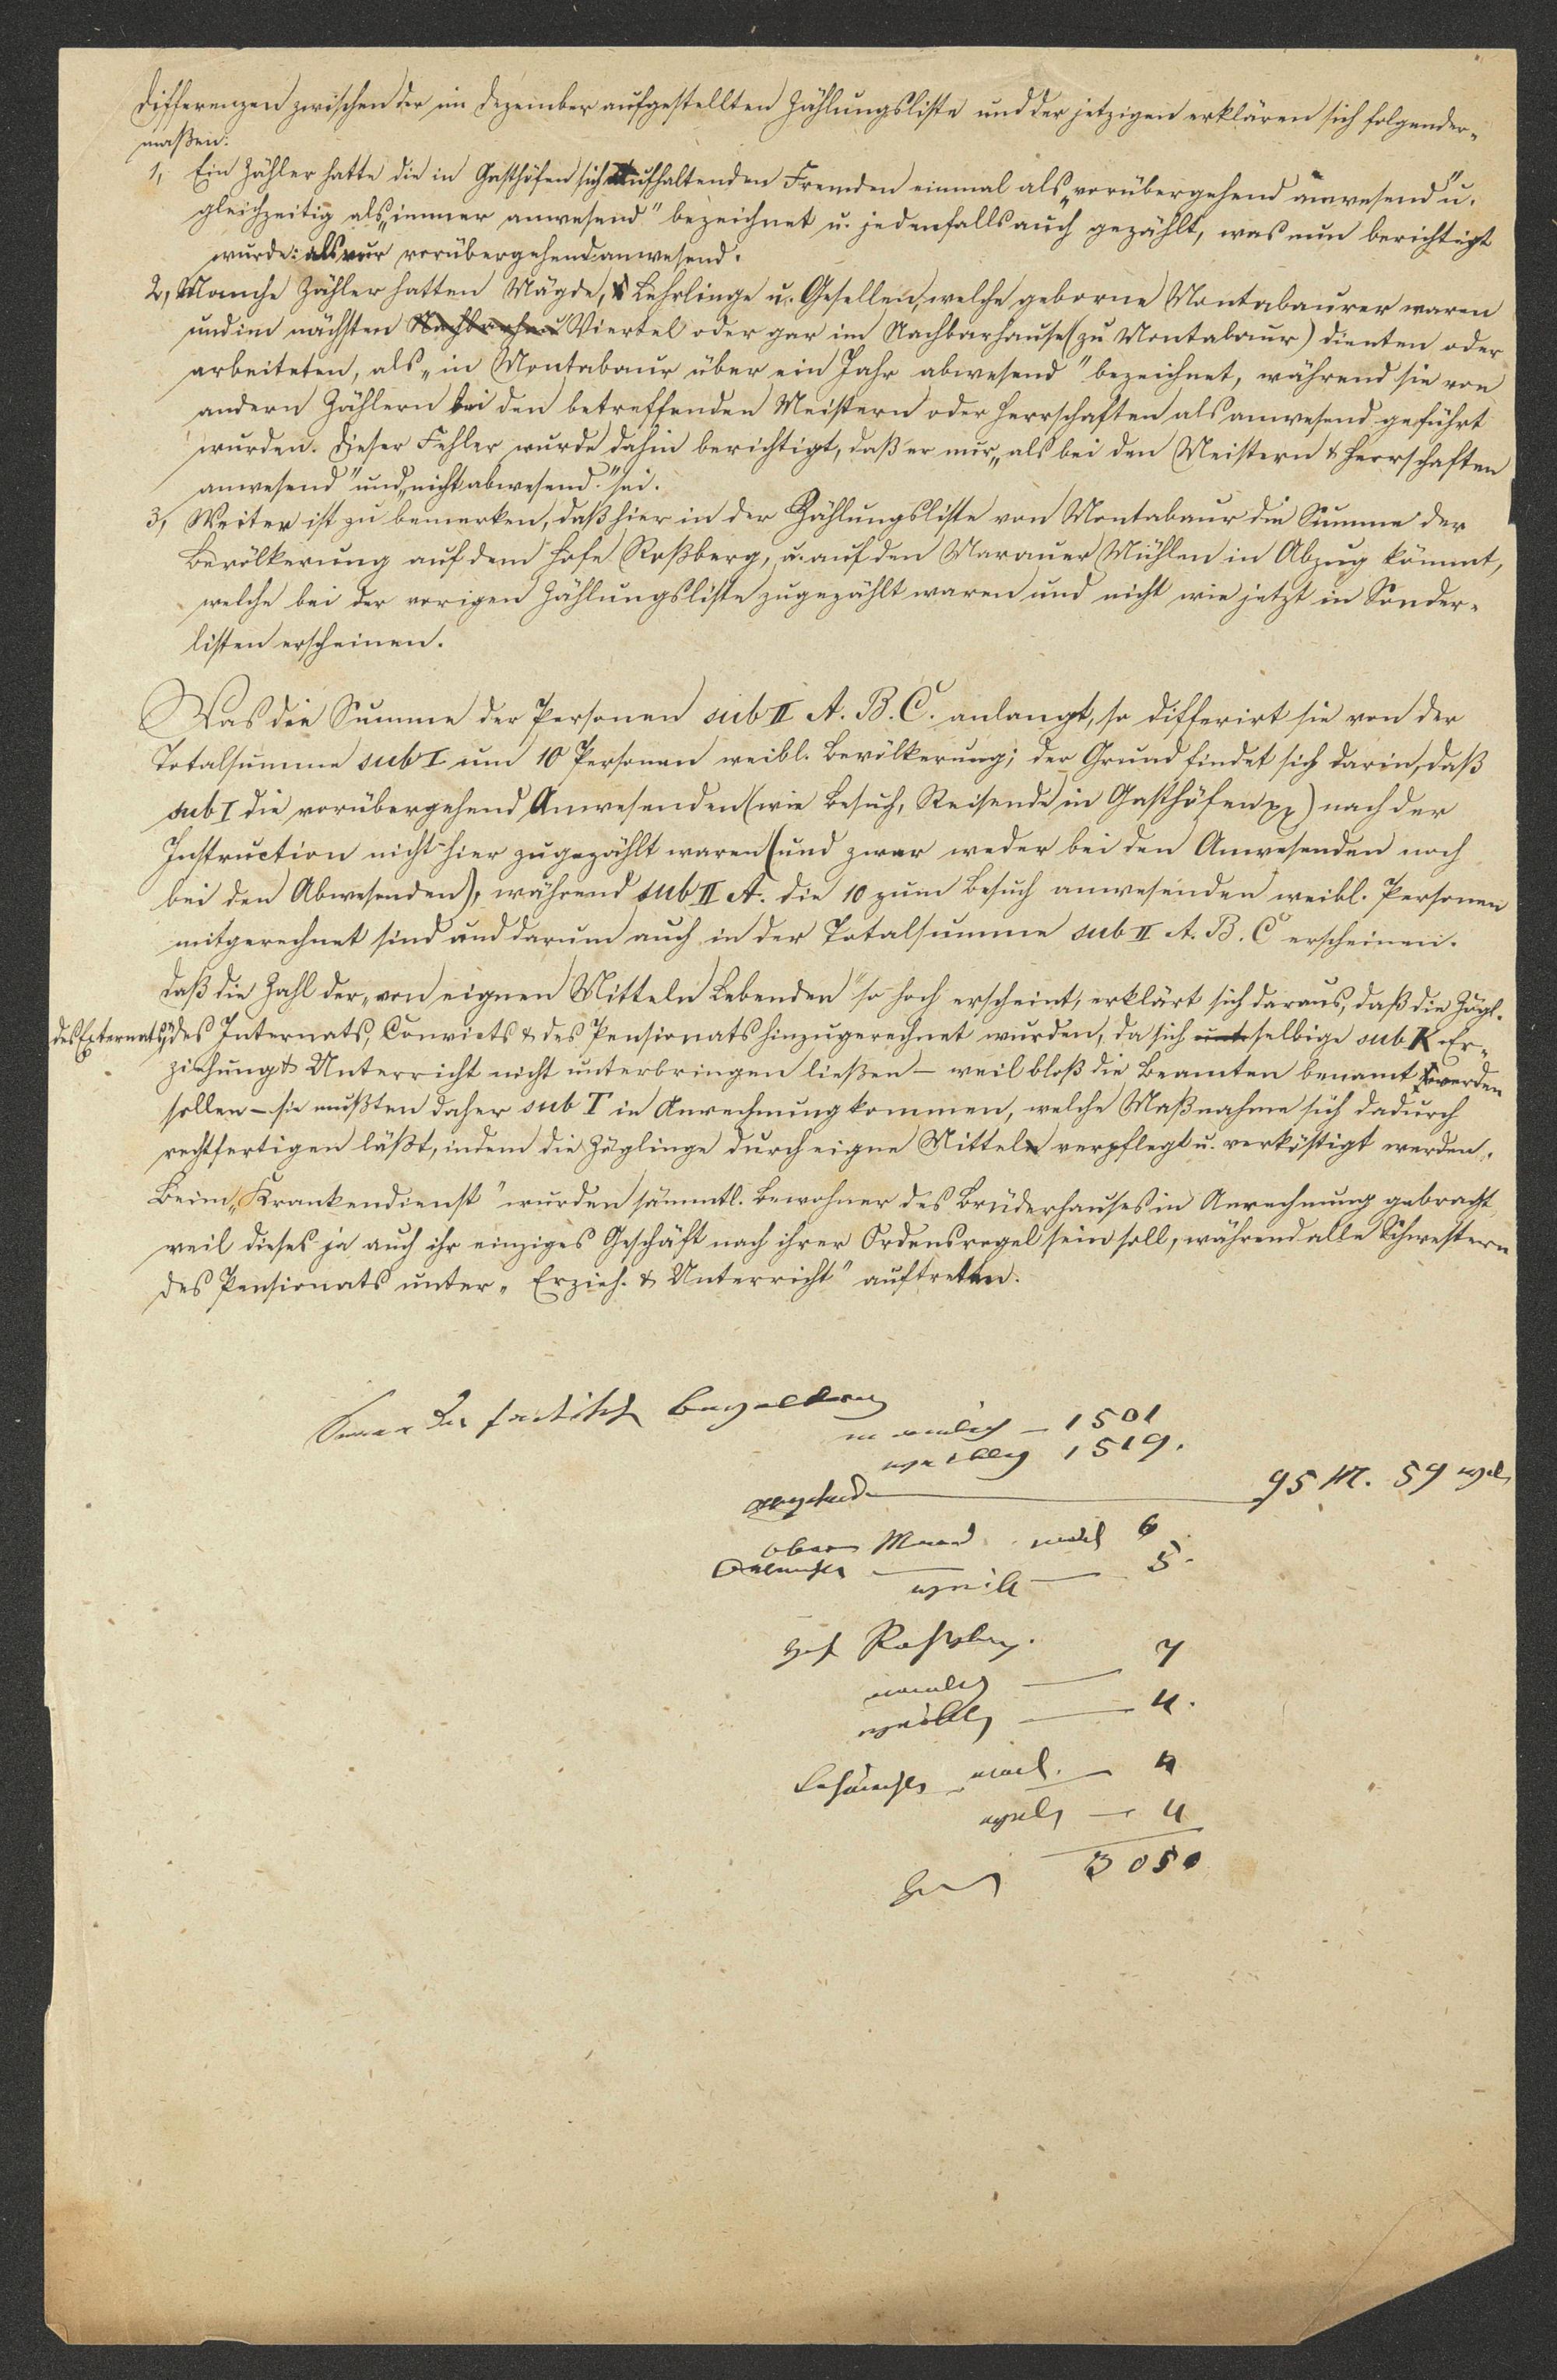 Differenzen zwischen der im Dezember aufgestellten Zählungsliste und der jetzigen erklären sich folgender-
maßen:
1, Ein Zähler hatte die in Gasthöfen sich aufhaltenden Fremden einmal als „vorübergehend anwesend" u.
gleichzeitig als „immer anwesend" bezeichnet u. jedenfalls auch gezählt, was nun berichtigt
wurde: als nur vorübergehend anwesend.
2, Manche Zähler hatten Mägde, Lehrlinge u. Gesellen, welche geborne Montabaurer waren
und im nächsten Viertel oder gar im Nachbarhause (zu Montabaur) dienten oder
arbeiteten, als „in Montabaur über ein Jahr abwesend" bezeichnet, während sie von
andern Zählern bei den betreffenden Meistern oder Herrschaften als anwesend geführt
wurden. Dieser Fehler wurde dahin berichtigt, daß er nur „als bei den Meistern & Herrschaften
anwesend" und „nicht abwesend." sei.
3, Weiter ist zu bemerken, daß hier in der Zählungsliste von Montabaur die Summe der
Bevölkerung auf dem Hofe Roßberg, u. auf den Marauer Mühlen in Abzug kömmt,
welche bei der vorigen Zählungsliste zugezählt waren und nicht wie jetzt in Sonder-
listen erscheinen.
Was die Summe der Personen sub II A. B. C. anlangt, so differirt sie von der
Totalsumme sub I um 10 Personen weibl. Bevölkerung; der Grund findet sich darin, daß
sub I die vorübergehend Anwesenden (wie Besuch, Reisende in Gasthöfen pp) nach der
Instruction nicht hier zugezählt waren (und zwar weder bei den Anwesenden noch
bei den Abwesenden), während sub II A. die 10 zum Besuch anwesenden weibl. Personen
mitgerechnet sind und darum auch in der Totalsumme sub II A. B. C erscheinen.
Daß die Zahl der „von eignen Mitteln Lebenden" so hoch erscheint, erklärt sich daraus, daß die Zögl.
des Externats, des Internats, Convicts & des Pensionats hinzugerechnet wurden, da sich selbige sub K Er-
ziehung & Unterricht nicht unterbringen ließen – weil bloß die Beamten benamt werden
sollen – sie mußten daher sub T in Anrechnung kommen, welche Maßnahme sich dadurch
rechtfertigen läßt, indem die Zöglinge durch eigne Mittel verpflegt u. verköstigt werden.
Beim „Krankendienst" wurden sämmtl. Bewohner des Brüderhauses in Anrechnung gebracht,
weil dieses ja auch ihr einziges Geschäft nach ihrer Ordensregel sein soll, während alle Schwestern
des Pensionats unter „Erzieh. & Unterricht" auftreten.
der factisch Bevölkerung
männlich – 1501
weiblich 1519.
95 M. 59 weibl
6
weibl — 5.
Hof Roßberg.
männlich — 7
weiblich — 4.
männl. — 4
weibl — 4
3050